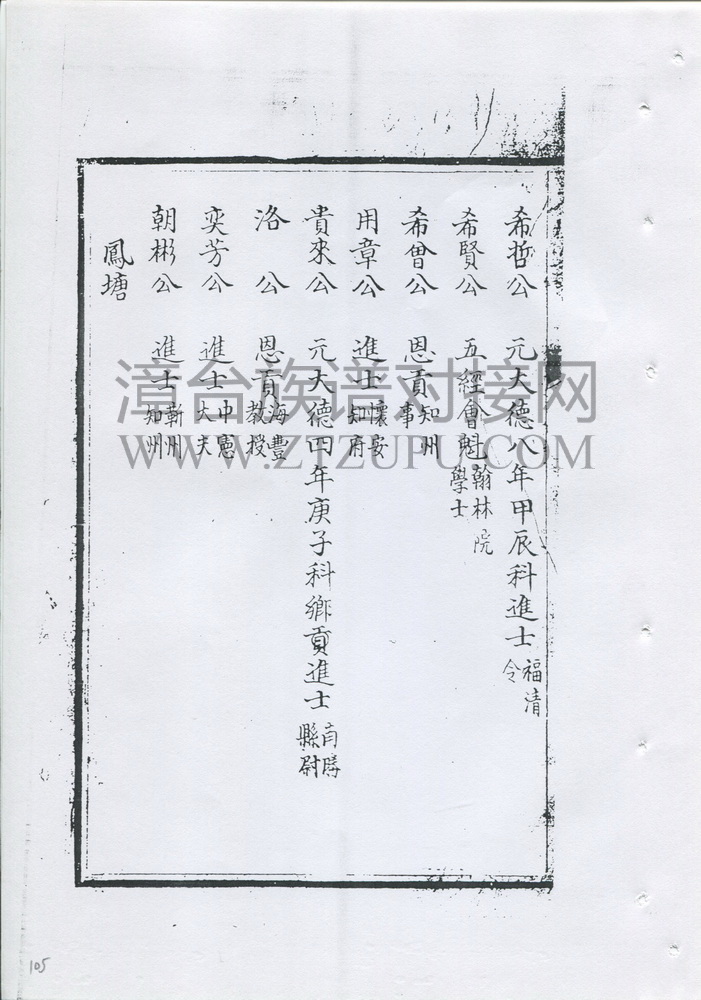 希哲公 元大德八年甲辰科進士 福清令
希賢公 五經會魁 翰林院學士
希曾公 恩貢 知州事
用章公 進士 懷安知府
貴來公 元大德四年庚子科鄉貢進士 南勝縣尉
洛公 恩貢 海豐教授
奕芳公 進士 中憲大夫
朝彬公 進士 蘄州知州
鳳塘
漳台族谱对接网
WWW.ZTZUPU.COM
105